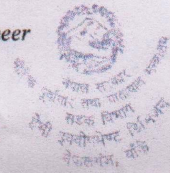 eer
नेपाल सरकार
भौतिक पूर्वाधार तथा यातायात मन्त्रालय
सडक विभाग
हेभी इक्वीपमेण्ट डिभिजन
नेपालगंज, बाँके